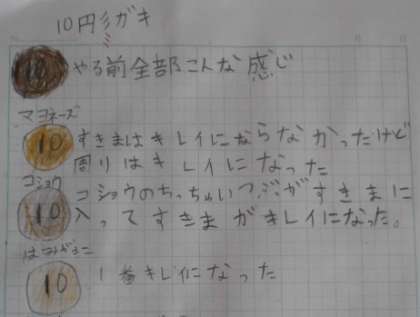 10円彡ガキ
10 やる前全部こんな感じ
マヨネーズ
10 すきまはキレイにならなかったけど
周りはキレイになった
コショウ
10 コショウのちっちゃいつぶがすきまに
入ってすきまがキレイになった。
はみがきこ
10 1番キレイになった